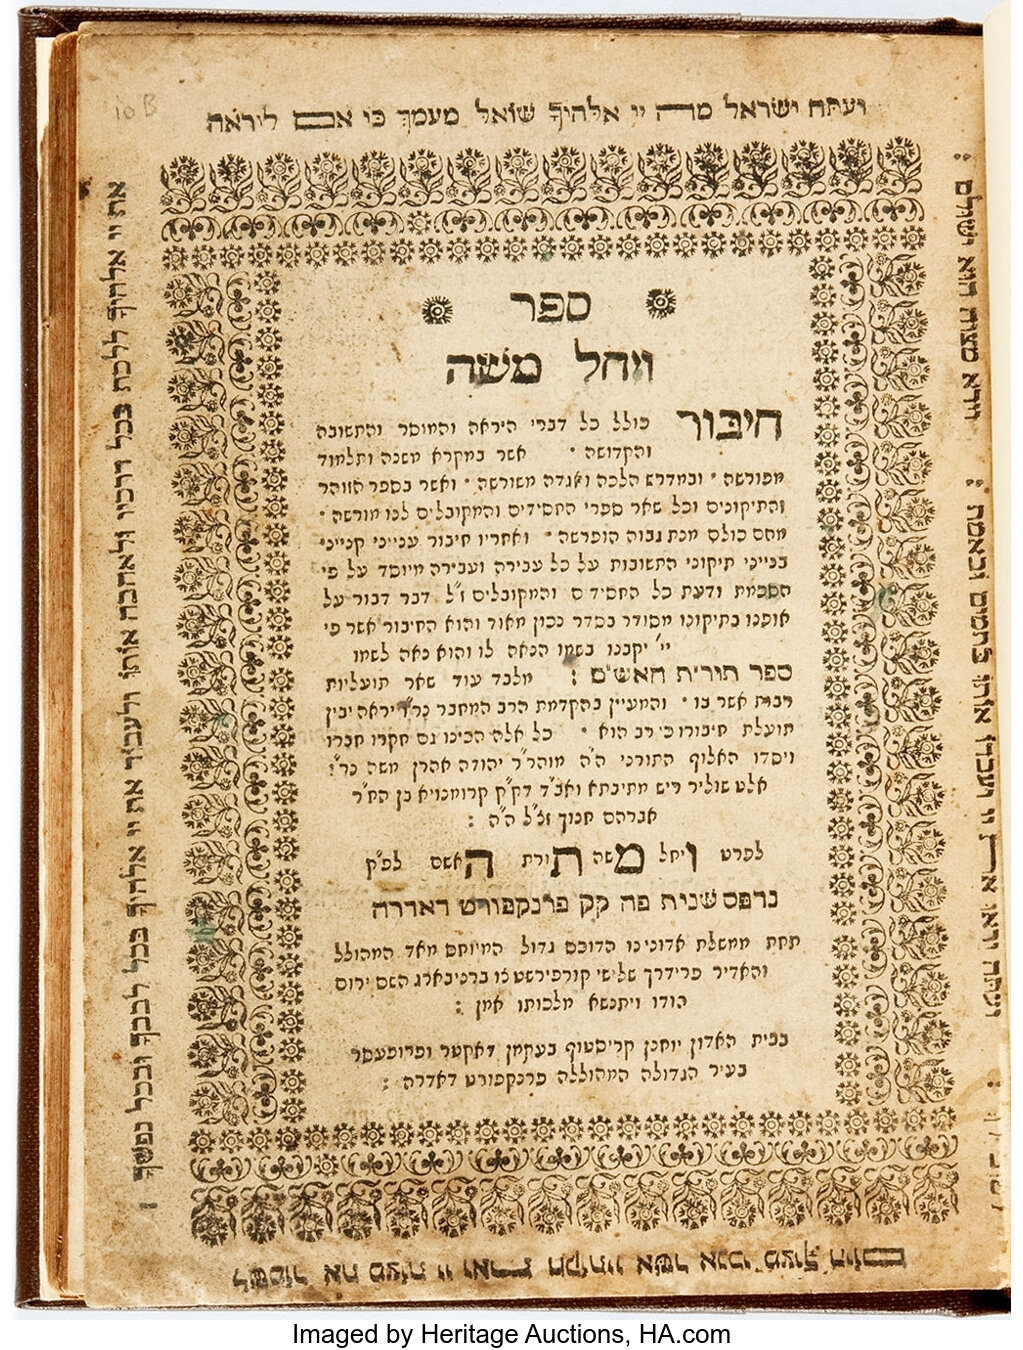 ועתה ישראל מה יי אלהיך שואל מעמך כי אם ליראה
את יי אלהיך ללכת בכל דרכיו ולאהבה אותו ולעבוד את יי אלהיך בכל לבבך ובכל נפשך :
לשמור את מצות יי ואת חקותיו אשר אנכי מצוך היום
10 B
ספר
ויחל משה
חיבור כולל כל דברי היראה והמוסר והתשובה
והקדושה • אשר במקרא משנה ותלמוד
מפורשה • ובמדרש הלכה ואגדה משורשה • ואשר בספר הזוהר
והתיקונים וכל שאר ספרי החסידים והמקובלים לנו מורשה •
מהם כולם מנת גבוה הופרשה • ואחריו חיבור ענייני קנייני
בנייני תיקוני התשובות על כל עבירה ועבירה מיוסד על פי
הסכמת ודעת כל החסידים והמקובלים ז"ל דבר דבור על
אופנו בתיקונו מסודר בסדר נכון מאוד והוא החיבור אשר פי
יי' יקבנו בשמו הנאה לו והוא נאה לשמו
ספר תורת האשם : מלבד עוד שאר תועליות
רבות אשר בו • והמעיין בהקדמת הרב המחבר נר"ו יראה יבין
תועלת חיבורו כי רב הוא • כל אלה הכינו גם חקרו חברו
ויסדו האלוף התורני ה"ה מוהר"ר יהודה אהרן משה נר"ו
אלט שוליר ריש מתיבתא ואב"ד דק"ק קרומנויא בן הח"ר
אברהם חנוך זצ"ל ה"ה :
לפרט ויחל משה תורת האשם לפ"ק
נדפס שנית פה קק פרנקפורט דאדרה
תחת ממשלת אדונינו הדוכס גדול המיוחס מאד המהולל
והאדיר פרידרך שלישי קורפירשט צו ברנינבארג השם ירום
הודו ויתנשא מלכותו אמן :
בבית האדון יוחנן קריסטוף בעקמן דאקטר ופרופעסר
בעיר הגדולה המהוללה פרנקפורט דאדרה :
Imaged by Heritage Auctions, HA.com